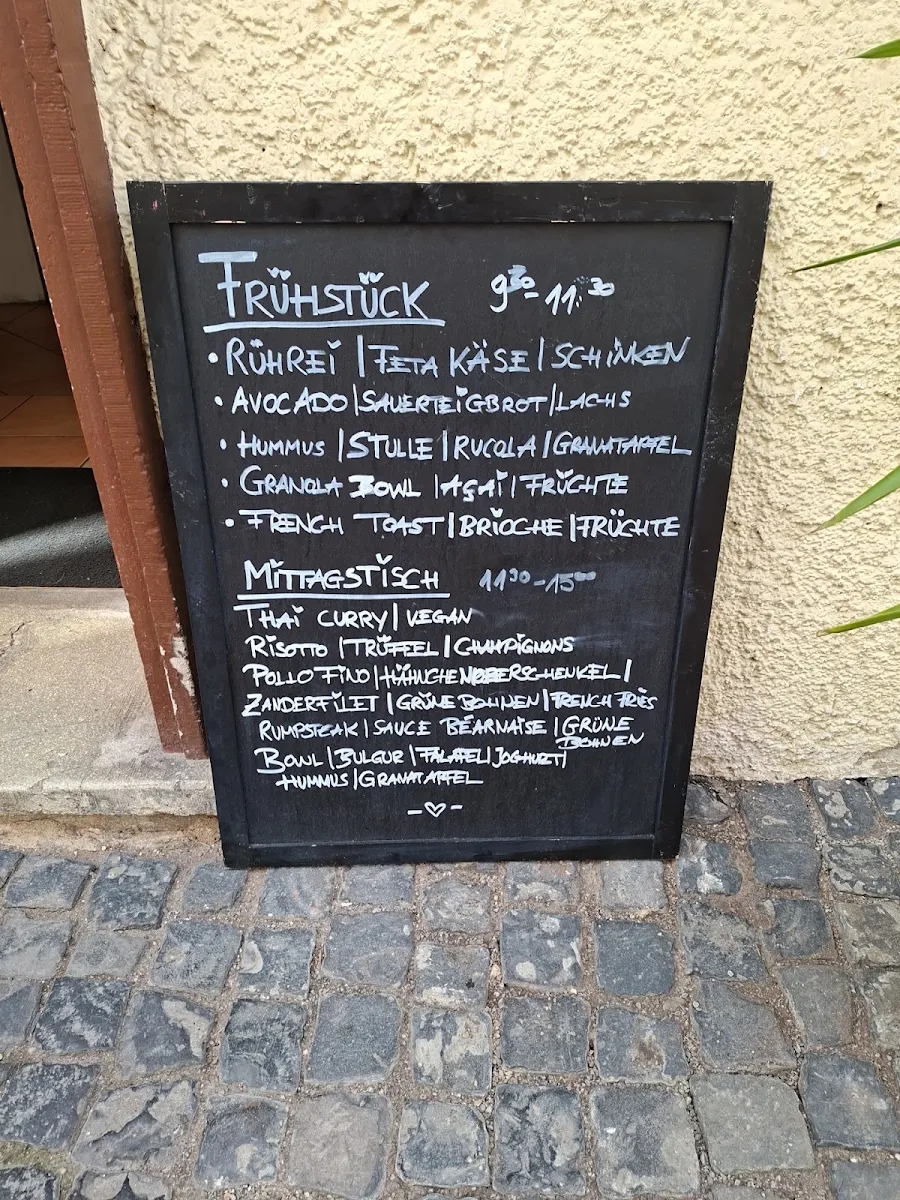 FRÜHSTÜCK 9³⁰-11:³⁰
• RÜHREI | FETA KÄSE | SCHINKEN
• AVOCADO | SAUERTEIGBROT | LACHS
• HUMMUS | STULLE | RUCOLA | GRANATAPFEL
• GRANOLA BOWL | AÇAÍ | FRÜCHTE
• FRENCH TOAST | BRIOCHE | FRÜCHTE
MITTAGSTISCH 11³⁰-15⁰⁰
THAI CURRY | VEGAN
RISOTTO | TRÜFFEL | CHAMPIGNONS
POLLO FINO | HÄHNCHENOBERSCHENKEL |
ZANDERFILET | GRÜNE BOHNEN | FRENCH FRIES
RUMPSTEAK | SAUCE BÉARNAISE | GRÜNE
BOHNEN
BOWL | BULGUR | FALAFEL | JOGHURT |
HUMMUS | GRANATAPFEL
-♡-